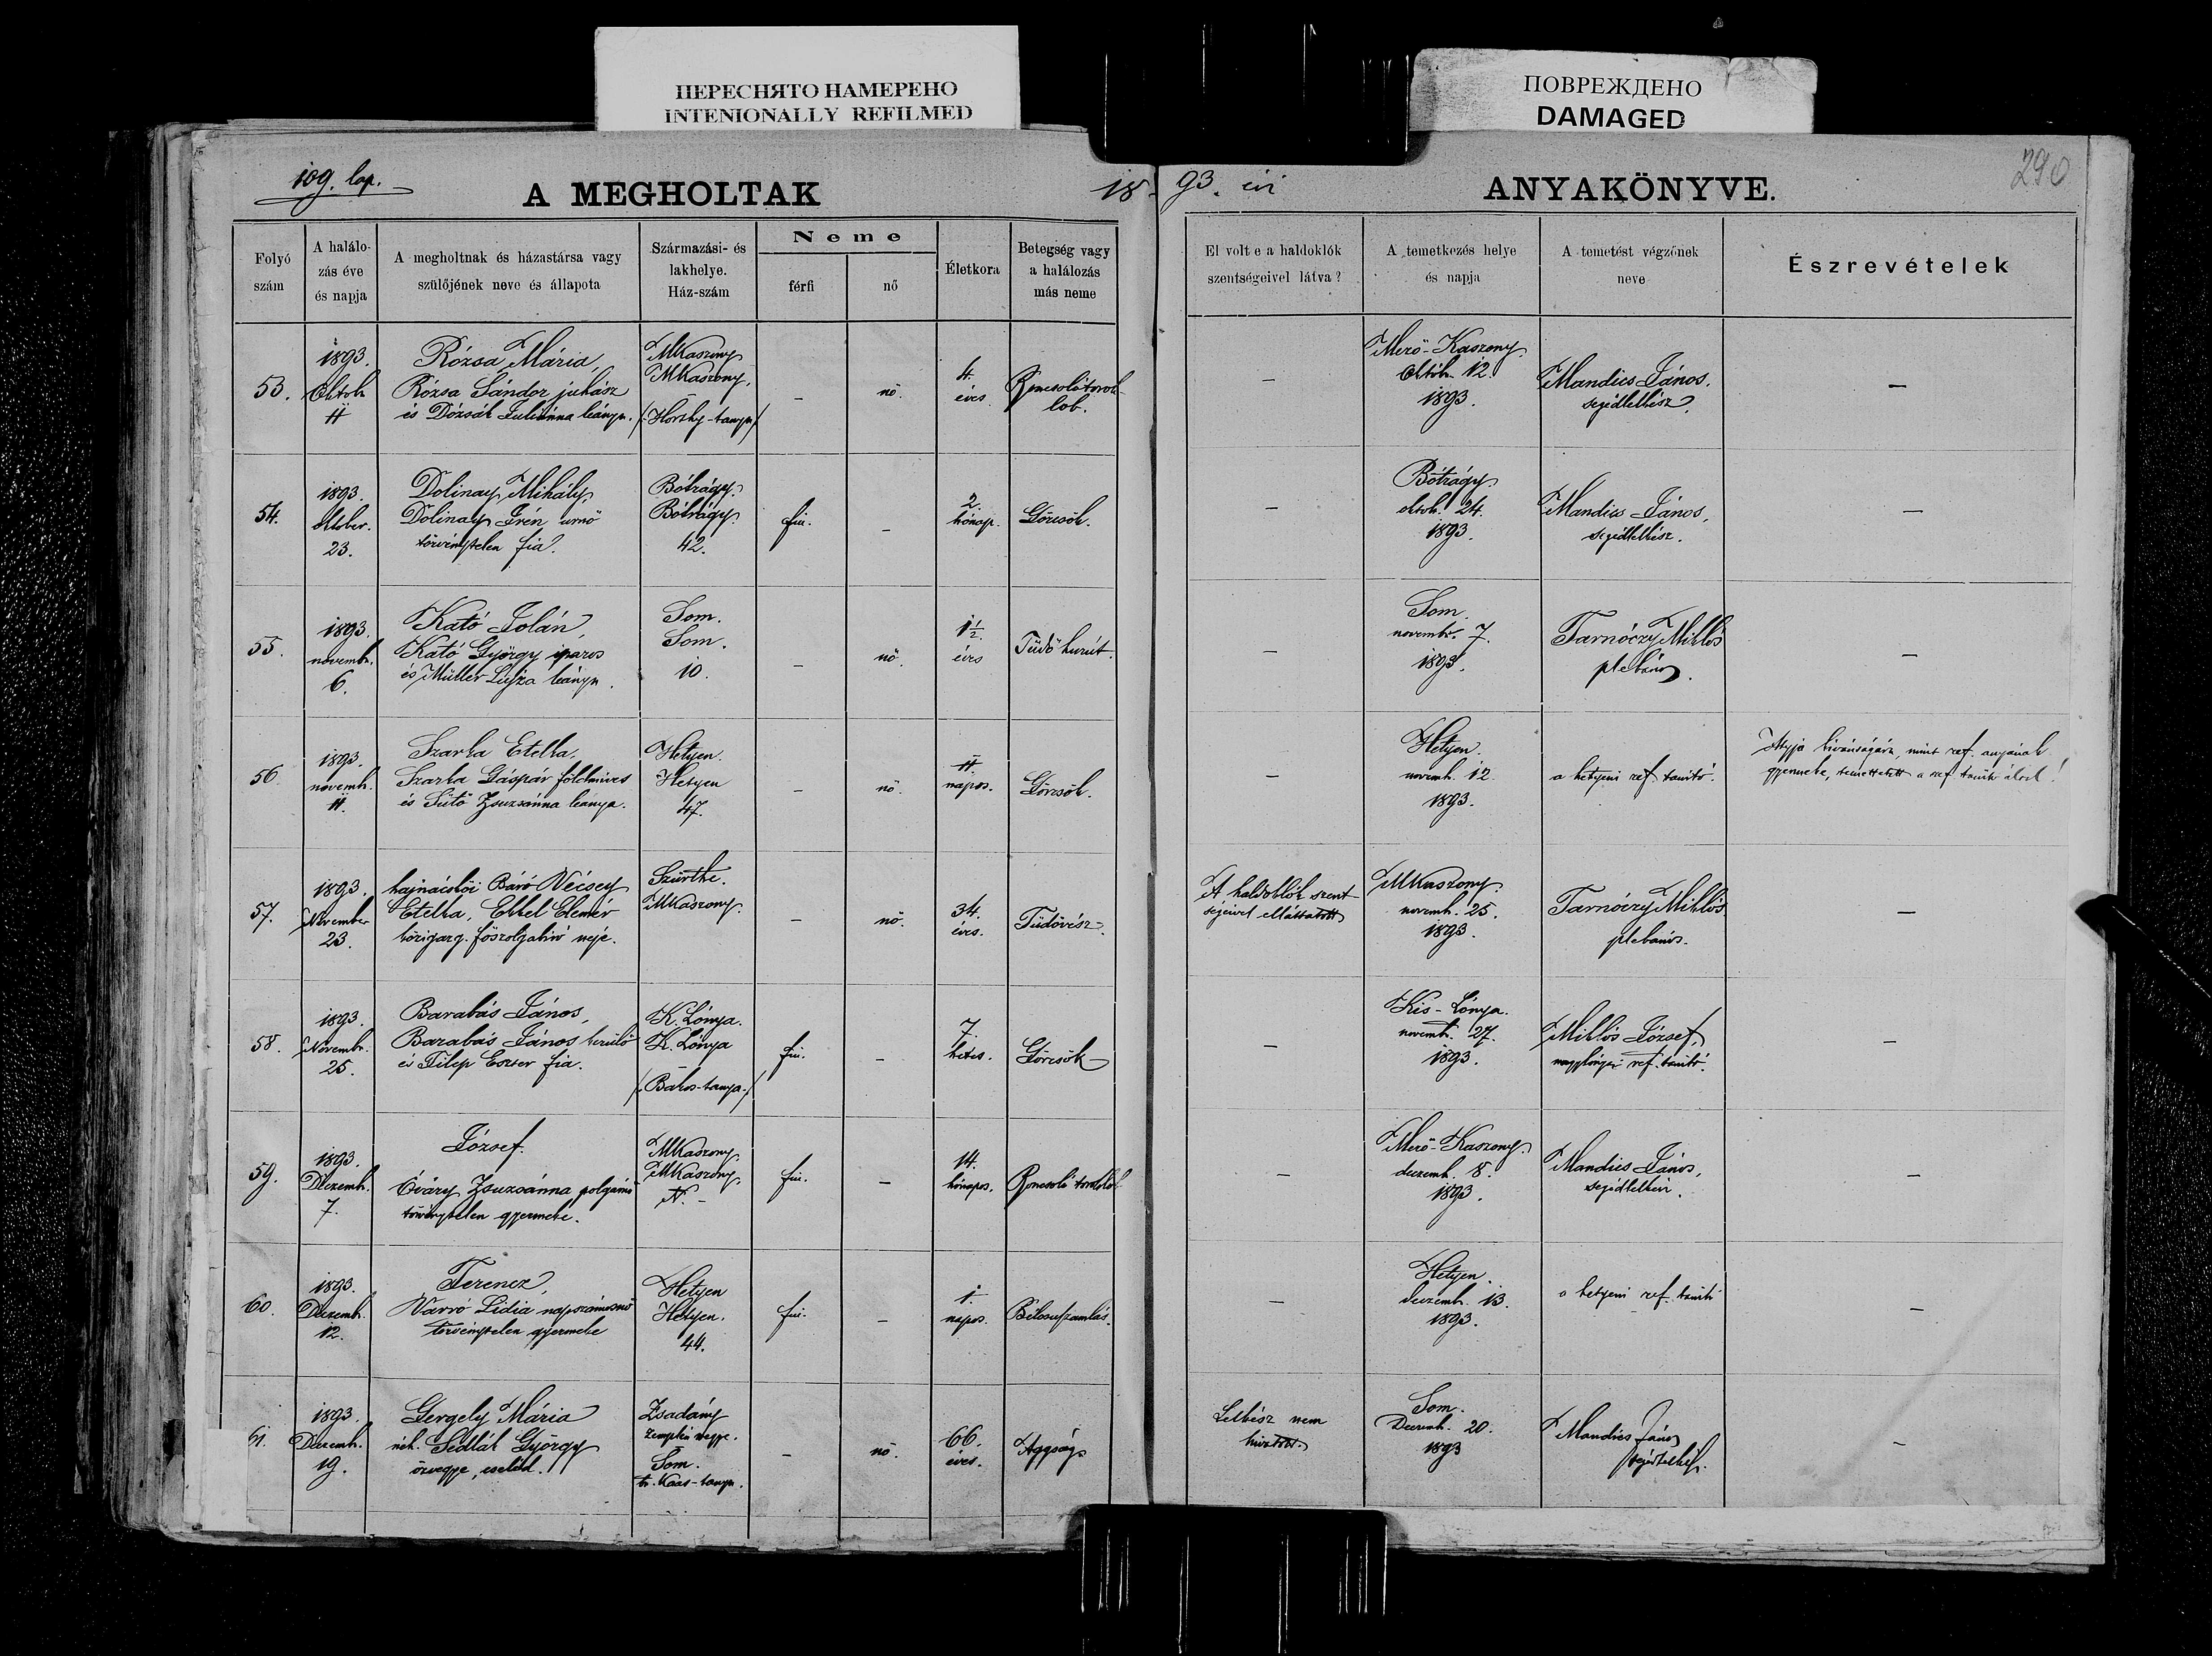 ПЕРЕСНЯТО НАМЕРЕНО
INTENIONALLY REFILMED
ПОВРЕЖДЕНО
DAMAGED
109. lap.
A MEGHOLTAK
18
93. évi
ANYAKÖNYVE.
290
Folyó
szám
A halálo-
zás éve
és napja
A megholtnak és házastársa vagy
szülőjének neve és állapota
Származási- és
lakhelye.
Ház-szám
Neme
férfi
nő
Életkora
Betegség vagy
a halálozás
más neme
El volt e a haldoklók
szentségeivel látva?
A temetkezés helye
és napja
A temetést végzőnek
neve
Észrevételek
53.
1893.
Oktob.
11
Rózsa Mária,
Rózsa Sándor juhász
és Dózsák Julianna leánya.
MKaszony
MKaszony.
/Horthy-tanya/
–
nő.
4.
éves
Roncsoló torok-
lob.
–
Mező-Kaszony.
Oktob. 12.
1893.
Mandics János,
segédlelkész.
–
54.
1893.
Október.
23.
Dolinay Mihály,
Dolinay Irén úrnő
törvénytelen fia.
Bótrágy.
Bótrágy.
42.
fiú.
–
2.
hónap.
Görcsök.
–
Bótrágy.
oktob. 24.
1893.
Mandics János,
segédlelkész.
–
55.
1893.
novemb.
6.
Kató Jolán,
Kató György iparos
és Müller Lujza leánya.
Som.
Som.
10.
–
nő.
1½.
éves
Tüdő hurút.
–
Som.
novemb. 7.
1893.
Tarnóczy Miklós
plebános.
–
56
1893.
novemb.
11.
Szarka Etelka,
Szarka Gáspár földmíves
és Sütő Zsuzsánna leánya.
Hetyen.
Hetyen
47.
–
nő.
11
napos.
Görcsök.
–
Hetyen.
novemb. 12
1893.
a hetyeni ref. tanító.
Atyja kivánságára, mint ref. anyának
gyermeke, temettetett a ref. tanító által!
57.
1893.
November
23.
hajnácskői Báró Vécsey
Etelka, Ekkel Elemér
közigazg. főszolgabíró neje.
Szürthe.
MKaszony.
–
nő.
34.
éves.
Tüdővész.
A haldoklók szent-
ségeivel elláttatott
MKaszony.
novemb. 25.
1893.
Tarnóczy Miklós
plebános.
–
58.
1893.
Novemb.
25.
Barabás János,
Barabás János kerülő
és Filep Eszter fia.
K. Lónya.
K. Lónya
/Bakos-tanya./
fiú.
–
7.
hetes.
Görcsök
–
Kis-Lónya.
novemb. 27.
1893.
Miklós József,
nagylónyai ref. tanító.
–
59.
1893.
Dezemb.
7.
József.
Óváry Zsuzsánna polgárnő
törvénytelen gyermeke.
MKaszony.
MKaszony.
N. –
fiú.
–
14.
hónapos.
Roncsoló toroklob
–
Mező-Kaszony.
dezemb. 8.
1893.
Mandics János,
segédlelkész.
–
60.
1893.
Dezemb.
12.
Ferencz,
Varró Lidia napszámosnő
törvénytelen gyermeke
Hetyen
Hetyen.
44.
fiú.
–
1.
napos.
–
Hetyen.
dezemb. 13.
1893.
a hetyeni ref. tanító
–
61.
1893.
Dezemb.
19.
Gergely Mária
néh. Sedlák György
özvegye, cseléd.
Zsadány
Zemplén megye.
Som.
br. Kaas-tanya.
–
nő.
66.
éves.
Aggság.
Lelkész nem
hivatott.
Som.
Decemb. 20.
1893
Mandics János
segédlelkész.
–